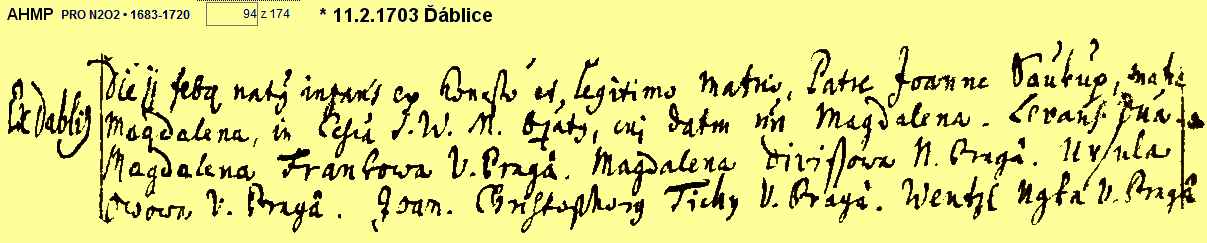 AHMP PRO N2O2 • 1683-1720 94 z 174 * 11.2.1703 Ďáblice
Die ij febr naty infans ex honesto et legitimo matrio, Patre Joanne Saukup, matre
Ex dablij Magdalena, in Ecsia S. W. M. bzaty, cuj datm Magdalena. Levans
Magdalena Frankowa V. Pragâ. Magdalena Divissowa N. Pragâ. Ursula
V. Pragâ. Joan. Christophorg Tichy V. Pragâ. Wentzl V. Pragâ